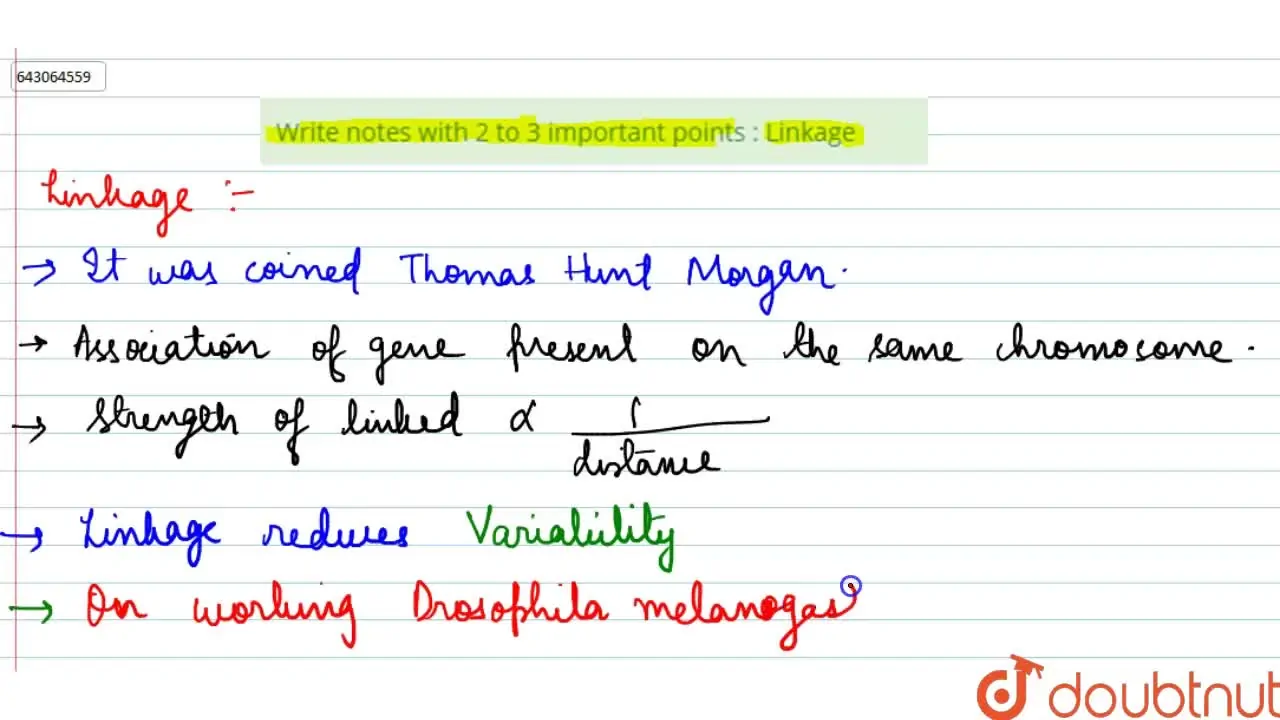 643064559
Write notes with 2 to 3 important points : Linkage
Linkage :-
→ It was coined Thomas Hunt Morgan.
→ Association of gene present on the same chromosome.
→ Strength of linked ∝ 1
distance
→ Linkage reduces Variability
→ On working Drosophila melanogas
doubtnut